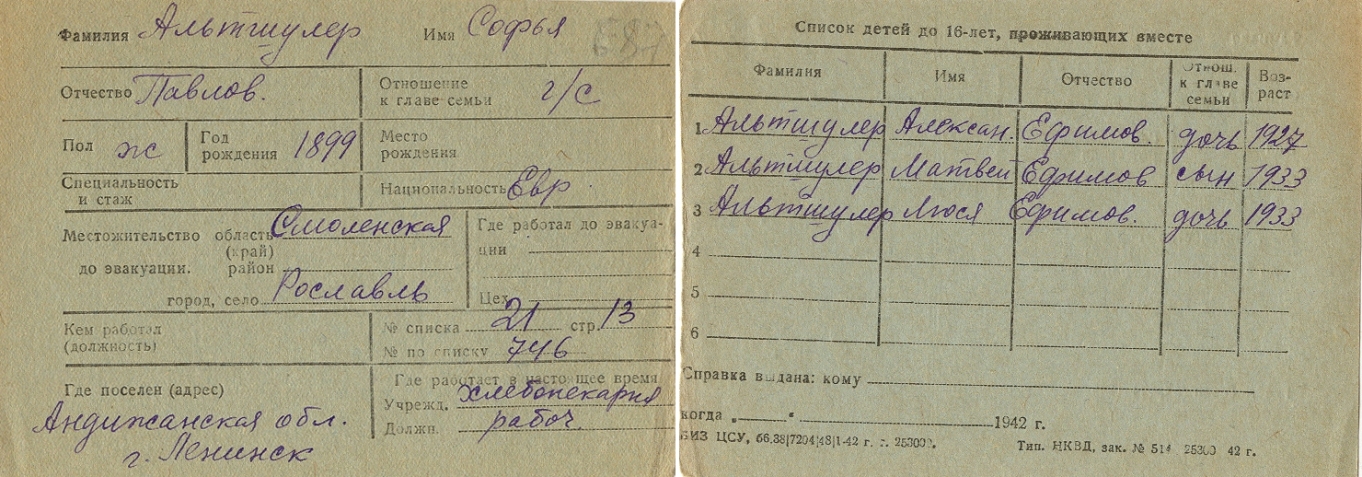 Фамилия Альтшулер Имя Софья
Отчество Павлов. Отношение к главе семьи г/с
Пол ж Год рождения 1899 Место рождения
Специальность и стаж Национальность Евр.
Местожительство область Смоленская Где работал до эвакуа-
(край) ции
до эвакуации. район
город, село Рославль Цех
Кем работал № списка 21 стр. 13
(должность) № по списку 746
Где поселен (адрес) Где работает в настоящее время
Учрежд. хлебопекарня
Андижанская обл. Должн. рабоч.
г. Ленинск
Список детей до 16-лет, проживающих вместе
Фамилия Имя Отчество Отнош. к главе семьи Воз-раст
1 Альтшулер Алексан. Ефимов. дочь 1927
2 Альтшулер Матвей Ефимов сын 1933
3 Альтшулер Люся Ефимов. дочь 1933
4
5
6
Справка выдана: кому
когда „ “ 1942 г.
БИЗ ЦСУ, 66.38|7204|48|1-42 г. Тип. НКВД, зак. № 514 25300 42 г.